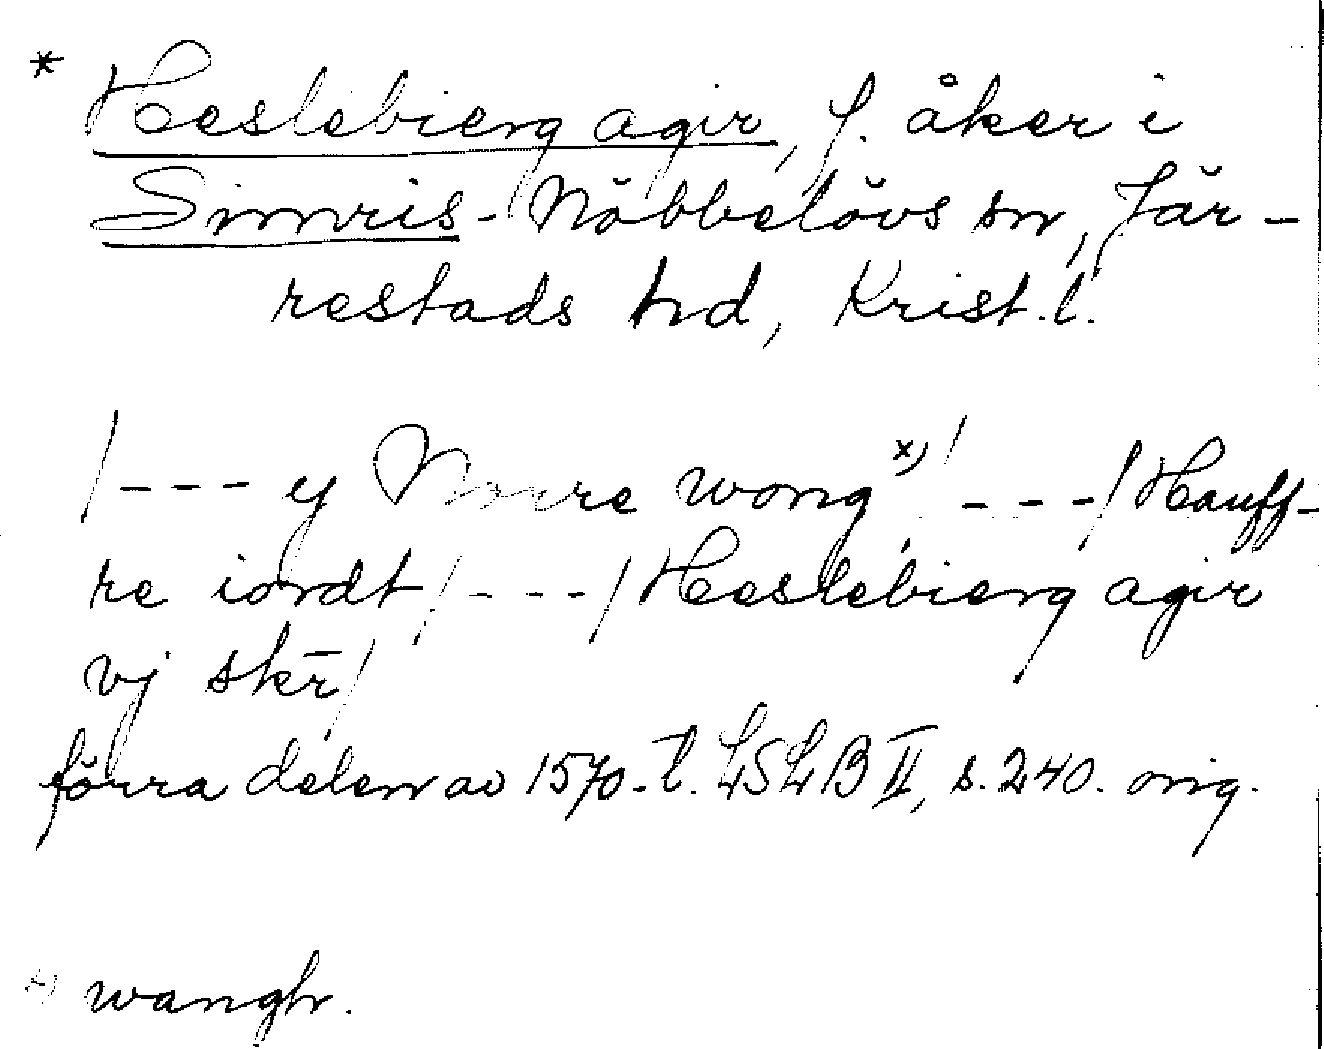 * Heslebierg agir, f. åker i
Simris-Nöbbelövs sn, Jär-
restads hd, Krist. l.
/--- y Norre wong x) / ---/ Hauff-
re iordt /---/ Heslebierg agir
vj skr̄ /
förra delen av 1570-t. LSLB II, s. 240. orig.
x) wangh.